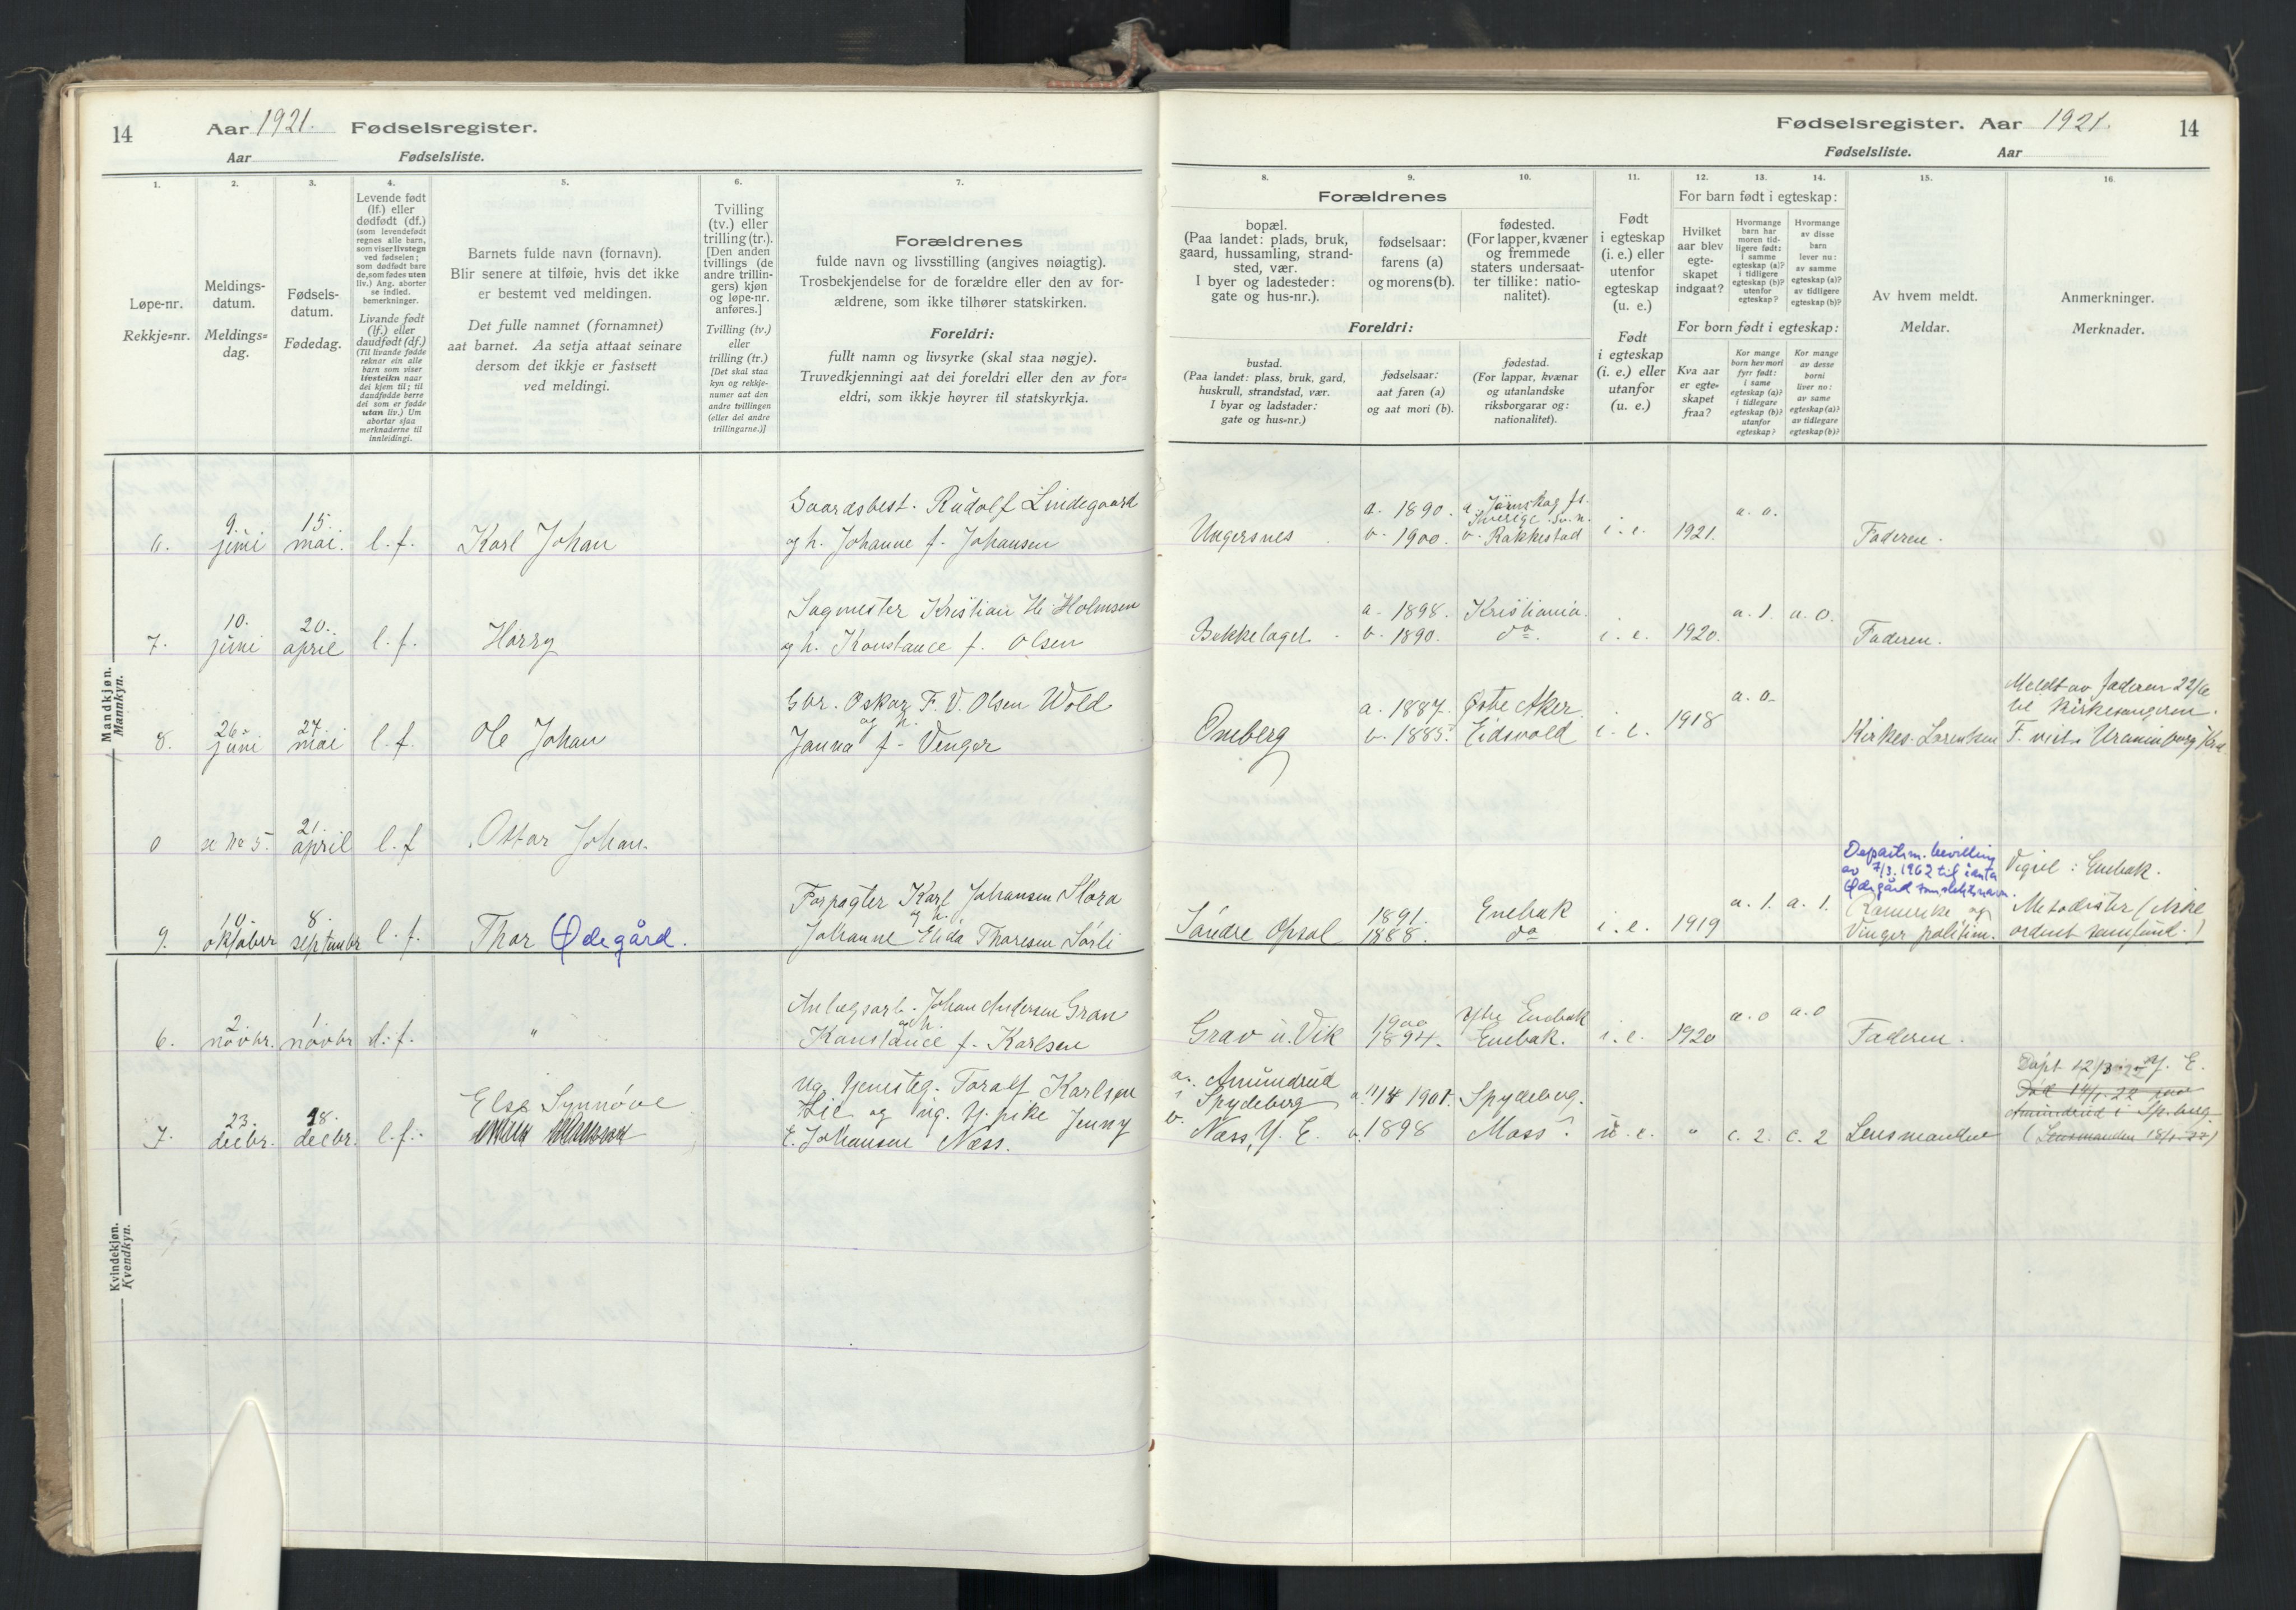 14
Aar 1921. Fødselsregister.
Aar Fødselsliste.
Fødselsregister. Aar 1921. 14
Fødselsliste. Aar
1.
Løpe-nr.
Rekkje=nr.
2.
Meldings-
datum.
Meldings=
dag.
3.
Fødsels-
datum.
Fødedag.
4.
Levende født
(lf.) eller
dødfødt (df.)
(som levendefødt
regnes alle barn,
som viser livstegn
ved fødselen;
som dødfødt bare
de, som fødes uten
liv.) Ang. aborter
se indled.
bemerkninger.
Livande født
(lf.) eller
daudfødt (df.)
(Til livande fødde
reknar ein alle
barn som viser
livsteikn naar
dei kjem til; til
daudfødde berre
dei som er fødde
utan liv.) Um
abortar sjaa
merknaderne til
innleidingi.
5.
Barnets fulde navn (fornavn).
Blir senere at tilføie, hvis det ikke
er bestemt ved meldingen.
Det fulle namnet (fornamnet)
aat barnet. Aa setja attaat seinare
dersom det ikkje er fastsett
ved meldingi.
6.
Tvilling
(tv.) eller
trilling (tr.).
[Den anden
tvillings (de
andre trillin-
gers) kjøn
og løpe-nr.
anføres.]
Tvilling (tv.)
eller
trilling (tr.)
[Det skal staa
kyn og rekkje-
numer aat den
andre tvillingen
(eller dei andre
trillingarne.)]
7.
Forældrenes
fulde navn og livsstilling (angives nøiagtig).
Trosbekjendelse for de forældre eller den av for-
ældrene, som ikke tilhører statskirken.
Foreldri:
fullt namn og livsyrke (skal staa nøgje).
Truvedkjenningi aat dei foreldri eller den av for=
eldri, som ikkje høyrer til statskyrkja.
Forældrenes
8.
bopæl.
(Paa landet: plads, bruk,
gaard, hussamling, strand-
sted, vær.
I byer og ladesteder:
gate og hus-nr.).
9.
fødselsaar:
farens (a)
og morens (b).
10.
fødested.
(For lapper, kvæner
og fremmede
staters undersaat-
ter tillike: natio-
nalitet).
Foreldri:
bustad.
(Paa landet: plass, bruk, gard,
huskrull, strandstad, vær.
I byar og ladstader:
gate og hus=nr.)
fødselsaar:
aat faren (a)
og aat mori (b).
fødestad.
(For lappar, kvænar
og utanlandske
riksborgarar og:
nationalitet).
11.
Født
i egteskap
(i. e.) eller
utenfor
egteskap
(u. e.)
Født
i egteskap
(i. e.) eller
utanfor
(u. e.)
12. 13. 14.
For barn født i egteskap:
Hvilket
aar blev
egte-
skapet
indgaat?
Hvormange
barn har
moren tid-
ligere født:
i samme
egteskap (a)?
i tidligere
egteskap (b)?
utenfor
egteskap?
Hvormange
av disse
barn
lever nu:
av samme
egteskap (a)?
av tidligere
egteskap (b)?
For born født i egteskap:
Kva aar
er egte-
skapet
fraa?
Kor mange
born hev mori
fyrr født:
i same
egteskap (a)?
i tidlegare
egteskap (b)?
utanfor
egteskap?
Kor mange
av desse
borni
liver no:
av same
egteskap (a)?
av tidlegare
egteskap (b)?
15.
Av hvem meldt.
Meldar.
16.
Anmerkninger.
Merknader.
Mandkjøn.
Mannkyn.
6. 9. juni 15. mai. l.f. Karl Johan
Gaardsbest. Rudolf Lindegaard
og h. Johanne f. Johansen
Ungersnes a. 1890. b. 1900.
Sverige. b. Rakkestad i. e. 1921. a. o. Faderen.
7. 10. juni 20. april l.f. Harry
Sagmester Kristian H. Holmsen
og h. Konstance f. Olsen
Bekkelaget a. 1898. b. 1890. Kristiania. do. i. e. 1920. a. 1. a. 0. Faderen.
8. 26. juni 27. mai l.f. Ole Johan
Gbr. Oskar F. V. Olsen Wold
og h.
Janna f. Venger
Oneberg a. 1887. b. 1885. Østre Aker. Eidsvold i. e. 1918 a. o. Kirkes. Lorentsen
Meldt av faderen 22/6
til kirkesangeren.
F. viet i Uranienborg Kra
0 se No 5. 21. april l.f. Ottar Johan.
9. 10. oktober 8. septembr l.f. Thor Ødegård.
Forpagter Karl Johansen Flora
og h.
Johanne Elida Thoresen Sørli
Søndre Opsal 1891. 1888. Enebak do i. e. 1919 a. 1. a. 1.
Departem. bevilling
av 7/3. 1962 til å anta
Ødegård som slektsnavn.
(Romerike og
Vinger politim.
Viget: Enebak.
Metodister (ikke
ordent samfund.)
Kvindekjøn.
Kvendkyn.
6. 2. novbr. 1. novbr d.f. "
Anlægsarb. Johan Andersen Gran
og h.
Konstance f. Karlsen
Grav u. Vik 1900 1894. Ytre Enebak Enebak. i. e. 1920 a. o a. o Faderen.
7. 23. decbr. 18. decbr. l.f. Else Synnøve
Ug. tjenesteg. Toralf Karlsen
Lie og ug. tj. pike Jenny
E. Johansen Næss.
a. Amundrud
i Spydeberg
b. Næss, Y. E. a. 11/4 1901. b. 1898 Spydeberg. Moss? u. e. " c. 2. c. 2 Lensmanden
Døpt 12/3 - 22 Y. E.
Døpt 14/5. 22
Amundrud i Sp.berg
(Lensmanden 18/1-22)